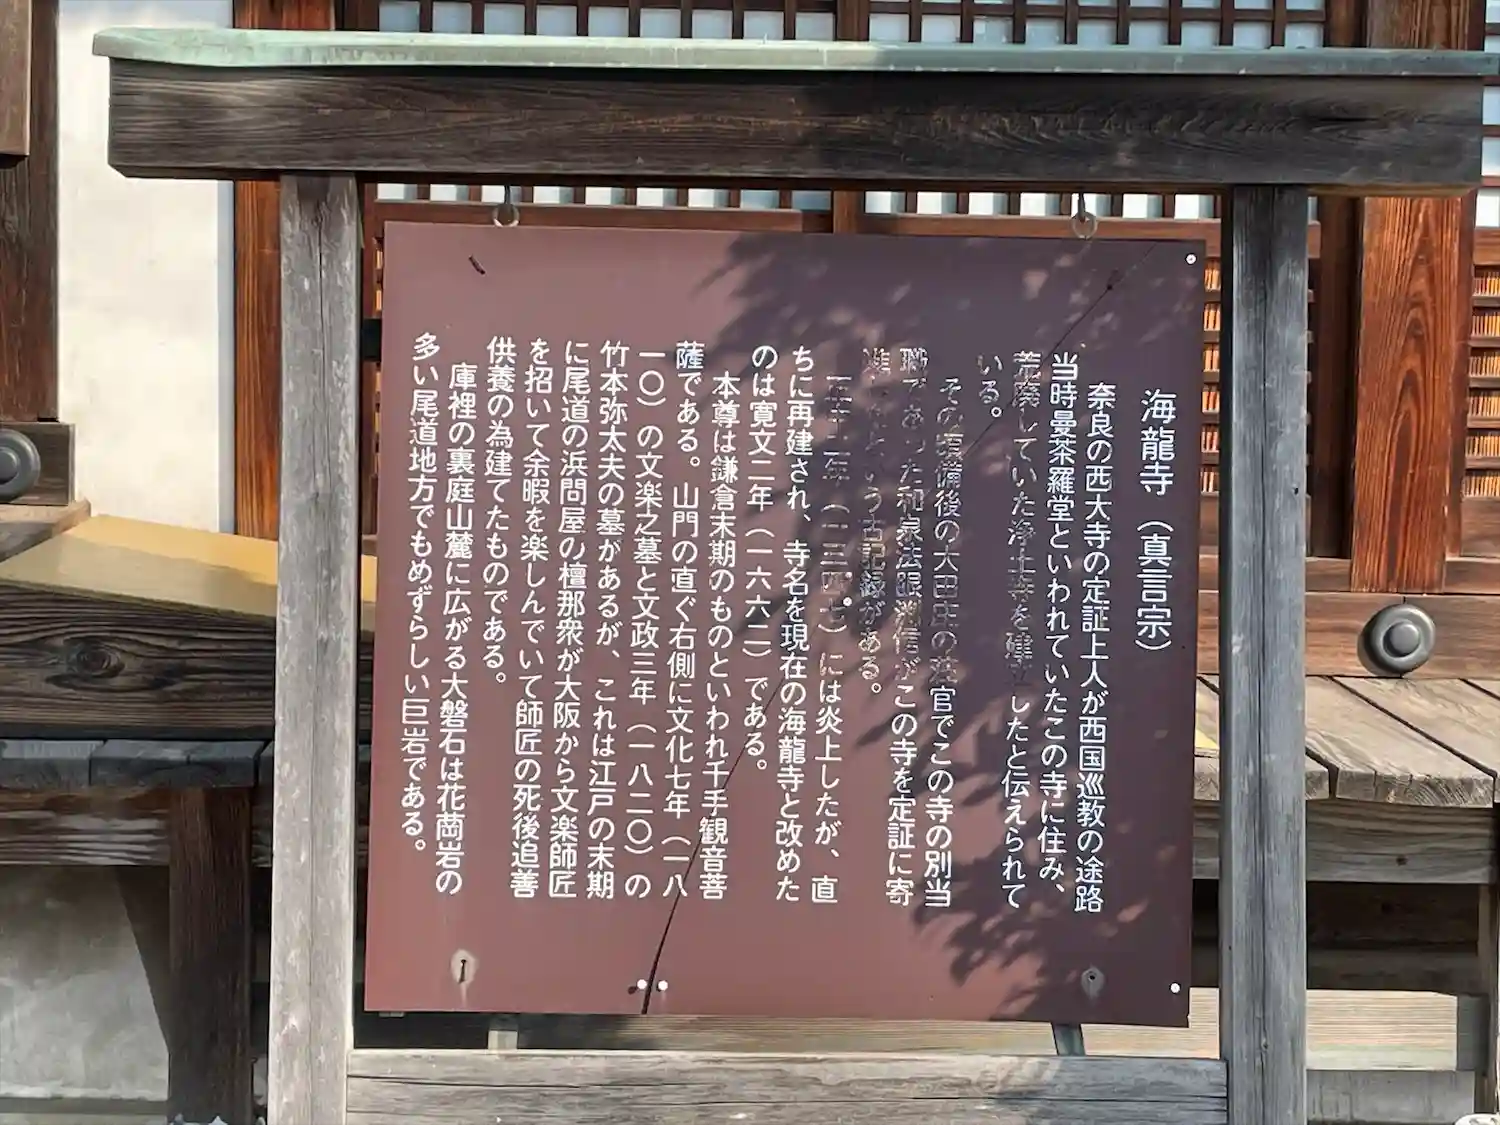 海龍寺（真言宗）
奈良の西大寺の定証上人が西国巡教の途路
当時曼荼羅堂といわれていたこの寺に住み、
荒廃していた浄土寺を建立したと伝えられて
いる。
その頃備後の大田庄の荘官でこの寺の別当
職であった和泉法眼渕信がこの寺を定証に寄
進したという古記録がある。
年（一三四七）には炎上したが、直
ちに再建され、寺名を現在の海龍寺と改めた
のは寛文二年（一六六二）である。
本尊は鎌倉末期のものといわれ千手観音菩
薩である。山門の直ぐ右側に文化七年（一八
一〇）の文楽之墓と文政三年（一八二〇）の
竹本弥太夫の墓があるが、これは江戸の末期
に尾道の浜問屋の檀那衆が大阪から文楽師匠
を招いて余暇を楽しんでいて師匠の死後追善
供養の為建てたものである。
庫裡の裏庭山麓に広がる大磐石は花崗岩の
多い尾道地方でもめずらしい巨岩である。